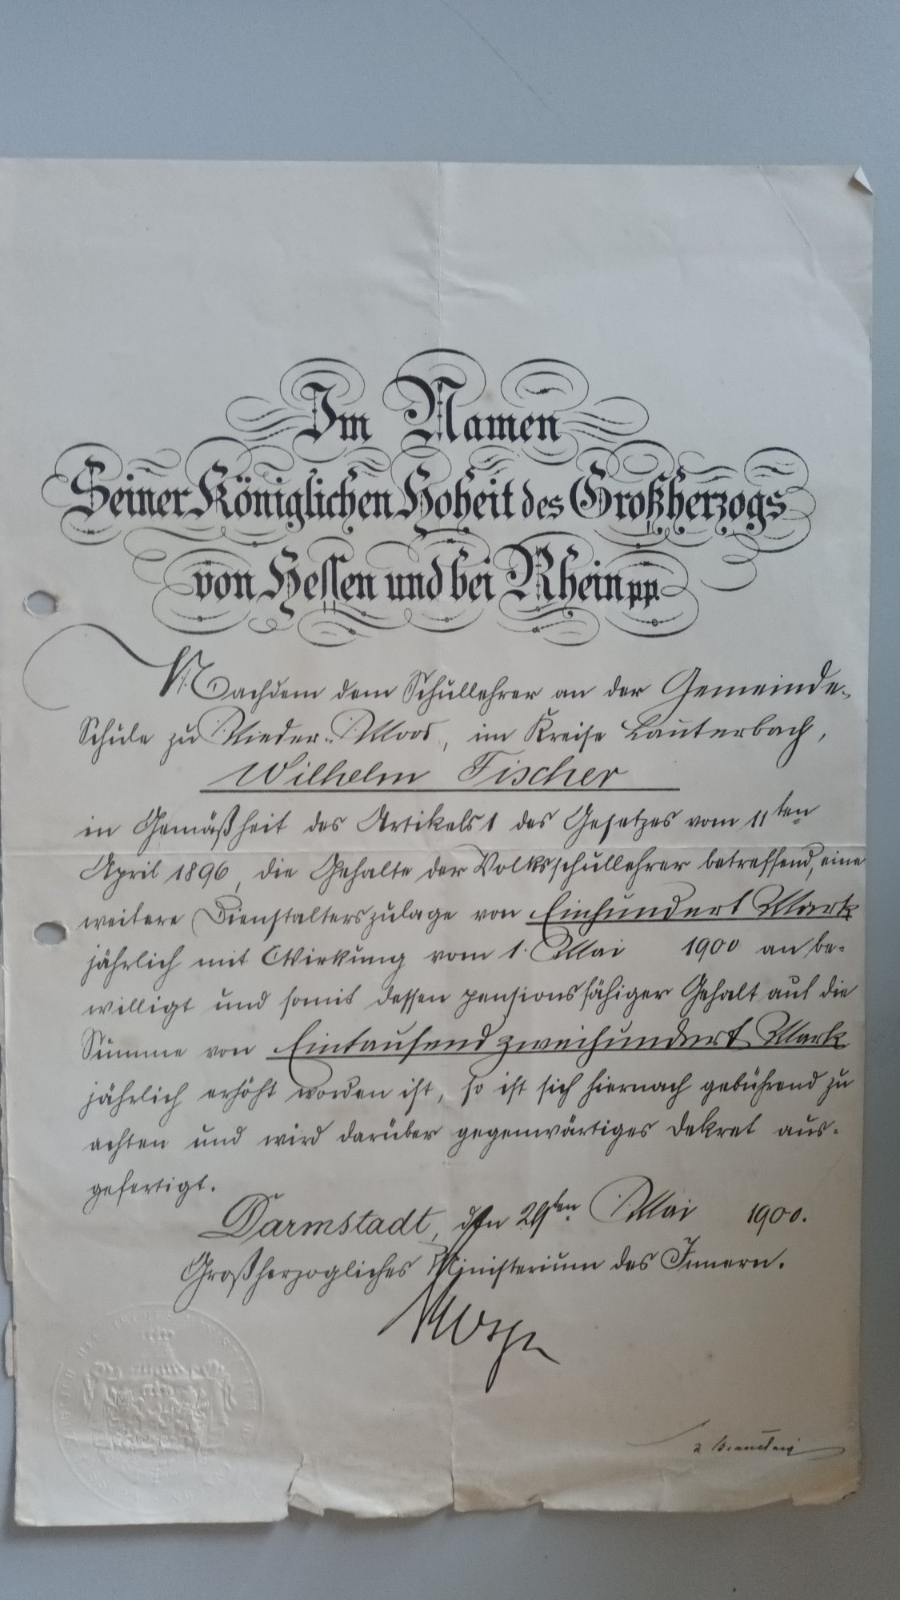 Im Namen
Seiner Königlichen Hoheit des Großherzogs
von Hessen und bei Rhein pp.
Nachdem dem Schullehrer an der Gemeinde-
Schule zu Nieder-Moos, im Kreise Lauterbach,
Wilhelm Fischer
in Gemäßheit des Artikels 1 des Gesetzes vom 11ten
April 1896, die Gehalte der Volksschullehrer betreffend, eine
weitere Dienstalterszulage von Einhundert Mark
jährlich mit Wirkung vom 1. Mai 1900 an be-
willigt und somit dessen pensionsfähiger Gehalt auf die
Summe von Eintausendzweihundert Mark
jährlich erhöht worden ist, so ist sich hiernach gebührend zu
achten und wird darüber gegenwärtiges Dekret aus-
gefertigt.
Darmstadt, den 29ten Mai 1900.
Großherzogliches Ministerium des Innern.